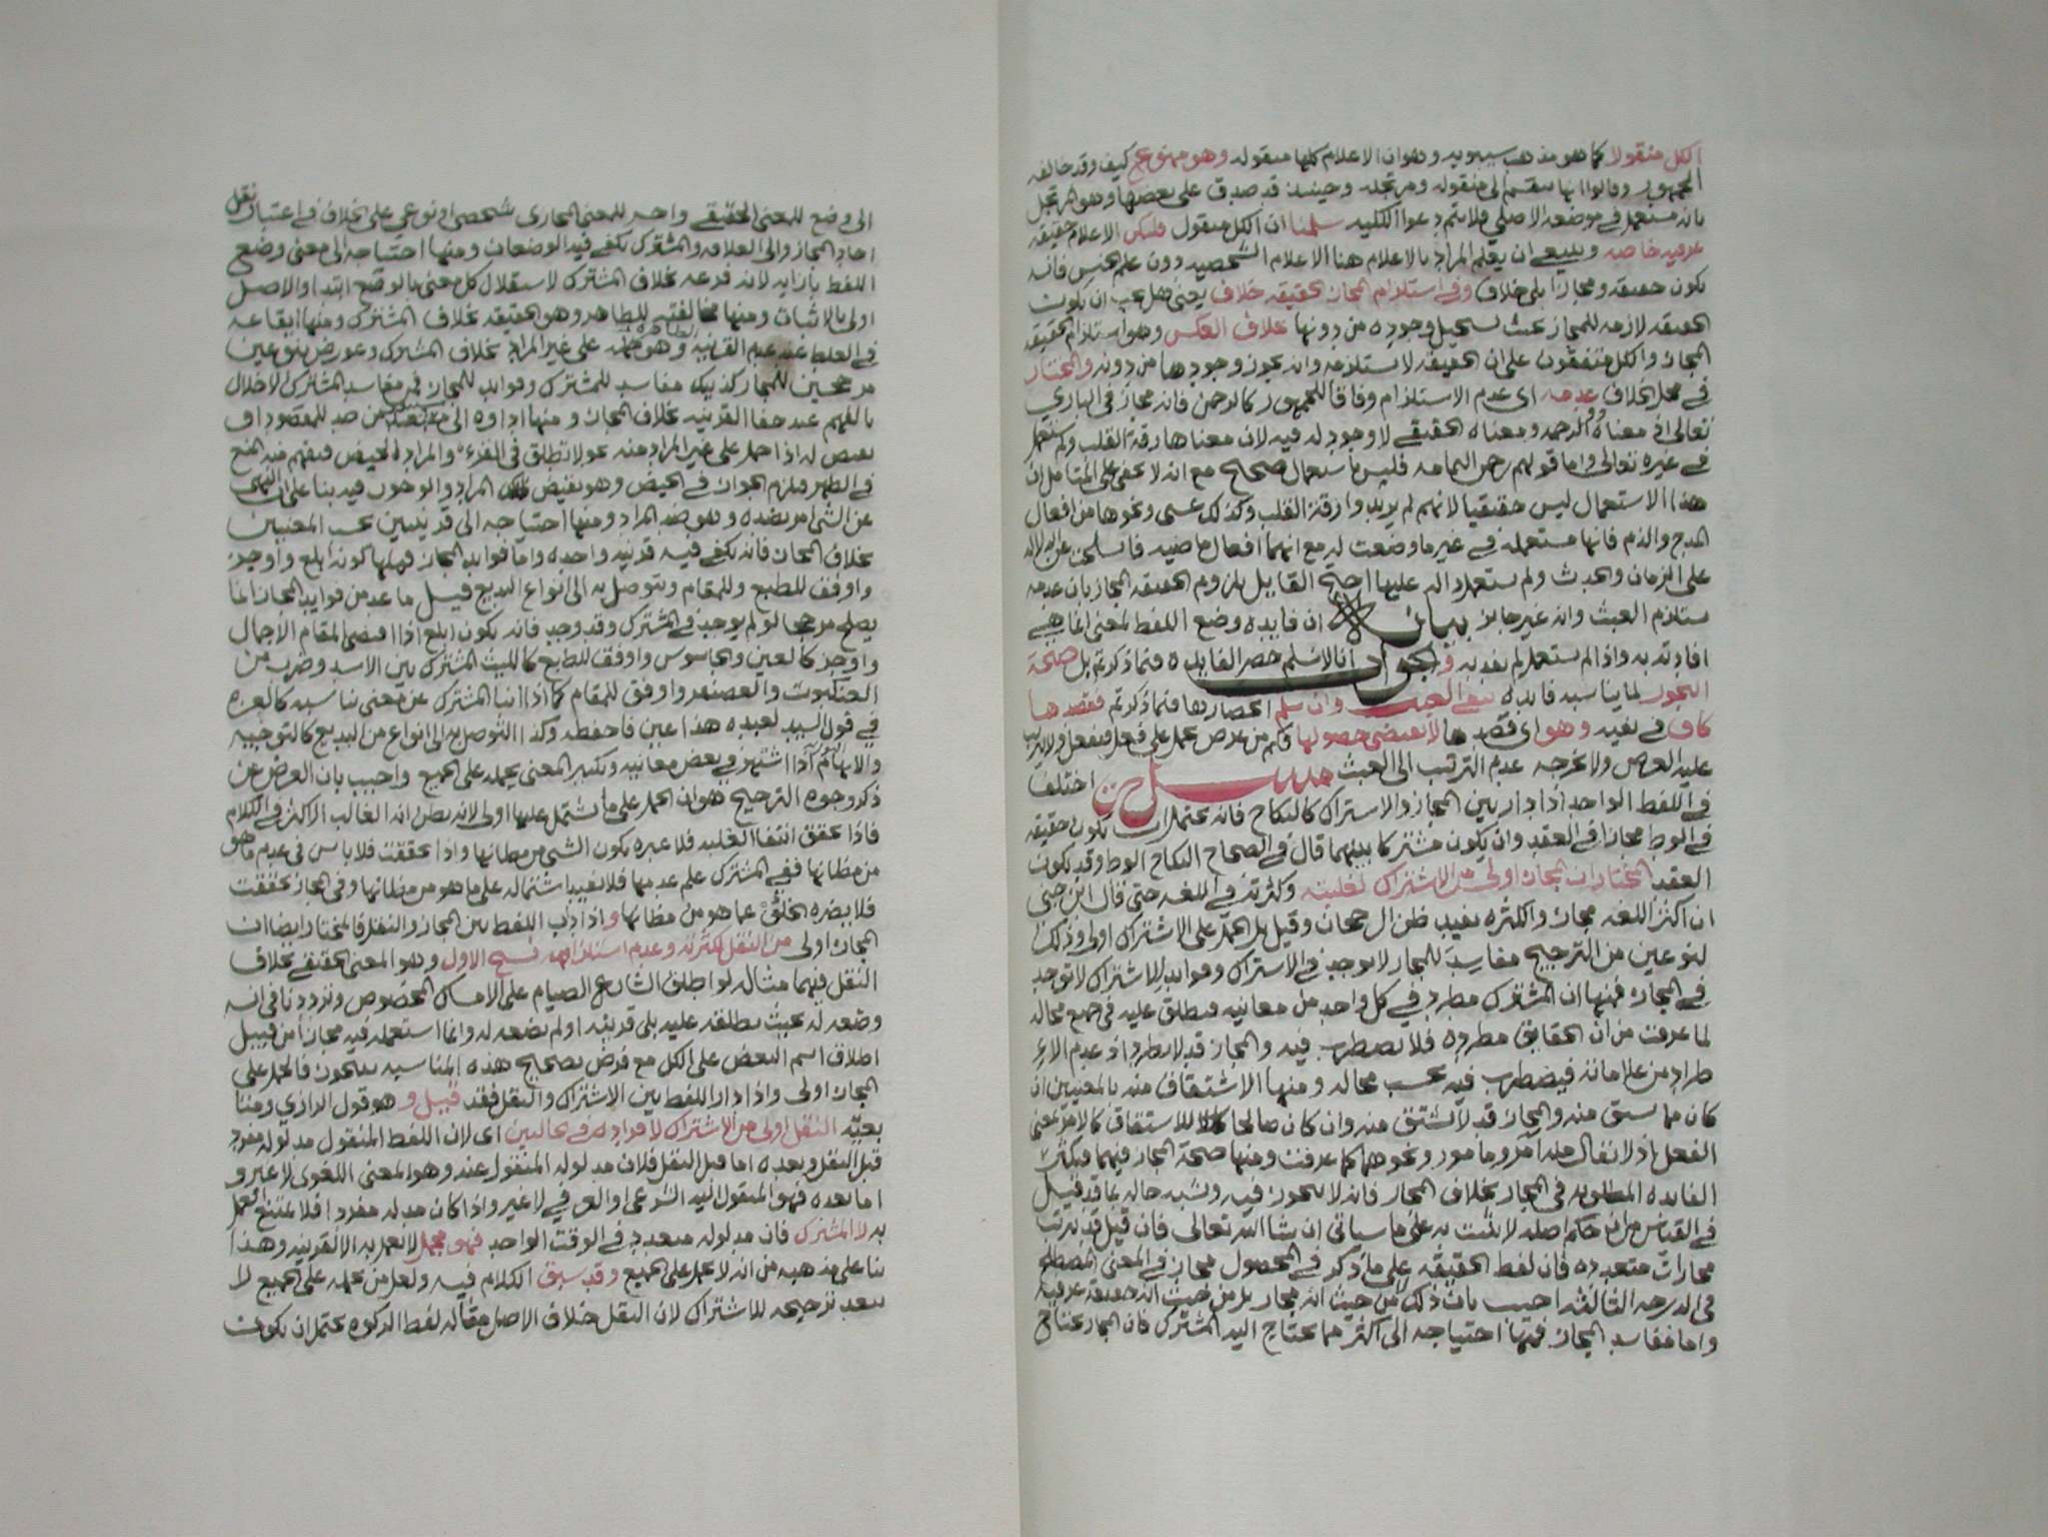 الكل منقولا كما هو مذهب سيبويه وهو ان الاعلام كلها منقوله وهو ممنوع كيف وقد خالفه
الجمهور وقالوا انها تنقسم الى منقوله ومرتجله وحينيذ قد صدق على بعضها وهو المرتجل
بانه مستعمل في موضعه الاصلي فلا يتم دعوا الكليه سلمنا ان الكل منقول فليكن الاعلام حقيقه
عرفيه خاصه وينبغي ان يعلم المراد بالاعلام هنا الاعلام الشخصيه دون علم الجنس فانه
يكون حقيقه ومجازا بلى خلاف وفي استلزام المجاز الحقيقه خلاف يعني هل يجب ان يكون
الحقيقه لازمه للمجاز بحيث يستحيل وجوده من دونها بخلاف العكس وهو استلزام الحقيقه
المجاز والكل متفقون على ان الحقيقه لا تستلزمه وانه يجوز وجودها من دونه والمختار
في محل الخلاف عدمه اى عدم الاستلزام وفاقا للجمهور كالرحمن فانه مجاز في الباري
تعالى اذ معناه ذو الرحمه ومعناه الحقيقي لا وجود له فيه لان معناها رقة القلب ولم يستعمل
في غيره تعالى واما قولهم رحمن اليمامه فليس باستعمال صحيح مع انه لا يخفى على المتامل ان
هذا الاستعمال ليس حقيقيا لانهم لم يريدوا رقة القلب وكذلك عسى ونحوها من افعال
المدح والذم فانها مستعمله في غير ما وضعت له مع انهما افعال ماضيه فانسلخت عن الدلاله
على الزمان والحدث ولم تستعمل داله عليها احتج القايل بلزوم الحقيقه المجاز بان عدمه
يستلزم العبث وانه غير جائز بيانه ان فايده وضع اللفظ لمعنى انما هي
افادته به واذا لم يستعمل لم يفد به والجواب انا لا نسلم حصر الفايده فيما ذكرتم بل صحة
التجوز لما يناسبه فايده تنفي العبث وان سلم انحصارها فيما ذكرتم فقصدها
كاف في نفيه وهو اى قصدها لا يقتضى حصولها فكم من غرض يحمل على فعل فيفعل ولا يترتب
عليه الغرض ولا يخرجه عدم الترتب الى العبث مسئلة اختلف
في اللفظ الواحد اذا دار بين المجاز والاشتراك كالنكاح فانه يحتمل ان يكون حقيقه
في الوطء مجازا في العقد وان يكون مشتركا بينهما قال في الصحاح النكاح الوطء وقد يكون
العقد المختار ان المجاز اولى من الاشتراك لغلبته وكثرته في اللغه حتى قال ابن جنى
ان اكثر اللغه مجاز والكثره تفيد ظن الرجحان وقيل بل الحمل على الاشتراك اولى وذلك
لنوعين من الترجيح مفاسد للمجاز لا توجد في الاشتراك وفوايد للاشتراك لا توجد
في المجاز فمنها ان المشترك مطرد في كل واحد من معانيه فيطلق عليه في جميع محاله
لما عرفت من ان الحقايق مطرده فلا يضطرب فيه والمجاز قد لا يطرد اذ عدم الا
طراد من علاماته فيضطرب فيه بحسب محاله ومنها الاشتقاق منه بالمعنيين ان
كان مما يشتق منه والمجاز قد لا يشتق منه وان كان صالحا للاشتقاق كالامر بمعنى
الفعل اذ لا يقال منه آمر ومامور ونحوهما كما عرفت ومنها صحة المجاز فيهما فيكثر
الفايده المطلوبه في المجاز بخلاف المجاز فانه لا يتجوز فيه ويشبه حاله بما قد قيل
في القياس من ان حكم اصله لا يثبت به على ما سياتى ان شا الله تعالى فان قيل قد يترتب
مجازات متعدده فان لفظ الحقيقه على ما ذكر في المحصول مجاز في المعنى المصطلح
في الدرجه الثالثه اجيب بان ذلك ليس من حيث انه مجاز بل من حيث انه حقيقه عرفيه
واما مفاسد المجاز فمنها احتياجه الى اكثر مما يحتاج اليه المشترك فان المجاز يحتاج
الى وضع للمعنى الحقيقي واخر للمعنى المجازى شخصى او نوعي على الخلاف في اعتبار نقل
احاد المجاز والى العلاقه والمشترك يكفي فيه الوضعان ومنها احتياجه الى معنى وضع
اللفظ بازايه لانه فرعه بخلاف المشترك لاستقلال كل معنى بالوضع ابتدا والاصل
اولى بالاثبات ومنها مخالفته للظاهر وهو الحقيقه بخلاف المشترك ومنها ايقاعه
في الغلط عند عدم القرينه وهو حمله على غير المراد بخلاف المشترك وعورض بنوعين
مرجحين للمجاز كذيك مفاسد للمشترك وفوايد للمجاز فمن مفاسد المشترك الاخلال
بالفهم عند خفا القرينه بخلاف المجاز ومنها اداوه الى مستبعد من ضد للمقصود او
نقيض له اذا حمل على غير المراد منه نحو لا تطلق في القرء والمراد الحيض فيفهم منه المنع
في الطهر فيلزم الجواز في الحيض وهو نقيض المراد والوجوب فيه بنا على ان النهى
عن الشى امر بضده وهو ضد المراد ومنها احتياجه الى قرينتين بحسب المعنيين
بخلاف المجاز فانه يكفي فيه قرينه واحده واما فوايد المجاز فمنها كونه ابلغ واوجز
واوفق للطبع وللمقام ويتوصل به الى انواع البديع قيل ما عد من فوايد المجاز انما
يصلح مرجحا لو لم يوجد في المشترك وقد وجد فانه يكون ابلغ اذا اقتضى المقام الاجمال
واوجز كالعين والجاسوس واوفق للطبع كالليث المشترك بين الاسد وضرب من
العنكبوت والعصفر واوفق للمقام كما اذا انبا المشترك عن معنى يناسبه كالعزه
في قول السيد لعبده هذا عين فاحفظه وكذا التوصل به الى انواع من البديع كالتوجيه
والايهام اذا اشتهر في بعض معانيه وتكثير المعنى بحمله على الجميع واجيب بان الغرض من
ذكر وجوه الترجيح هو ان الحمل على ما يشتمل عليها اولى لانه يظن انه الغالب الاكثر في الكلام
فاذا تحقق انتفا الغلبه فلا عبره بكون الشى من مظانها واذا تحققت فلا باس في عدم ما هو
من مظانها ففي المشترك علم عدمها فلا يفيد اشتماله على ما هو من مظانها وفي المجاز تحققت
فلا يضره الخلو عما هو من مظانها واذا دار اللفظ بين المجاز والنقل فالمختار ايضا ان
المجاز اولى من النقل لكثرته وعدم استلزامه نسخ الاول وهو المعنى الحقيقي بخلاف
النقل فيهما مثاله لو اطلق الشارع الصيام على الامساك المخصوص وترددنا في انه
وضعه له بحيث يطلقه عليه بلى قرينه او لم يضعه له وانما استعمله فيه مجازا من قبيل
اطلاق اسم البعض على الكل مع فرض تصحيح هذه المناسبه للتجوز فالحمل على
المجاز اولى واذا دار اللفظ بين الاشتراك والنقل فقد قيل وهو قول الرازي ومن تا
بعيه النقل اولى من الاشتراك لافراده في حالتين اى لان اللفظ المنقول مدلوله مفرد
قبل النقل وبعده اما قبل النقل فلان مدلوله المنقول عنه وهو المعنى اللغوى لا غير و
اما بعده فهو المنقول اليه الشرعى او العرفي لا غير واذا كان مدلوله مفردا فلا يمتنع العمل
به لا المشترك فان مدلوله متعدد في الوقت الواحد فهو مجمل لا يعمل به الا لقرينه وهذا
بنا على مذهبه من انه لا يحمل على الجميع وقد سبق الكلام فيه ولعل من يحمله على الجميع لا
يبعد ترجيحه للاشتراك لان النقل خلاف الاصل مثاله لفظ الزكوه يحتمل ان يكون